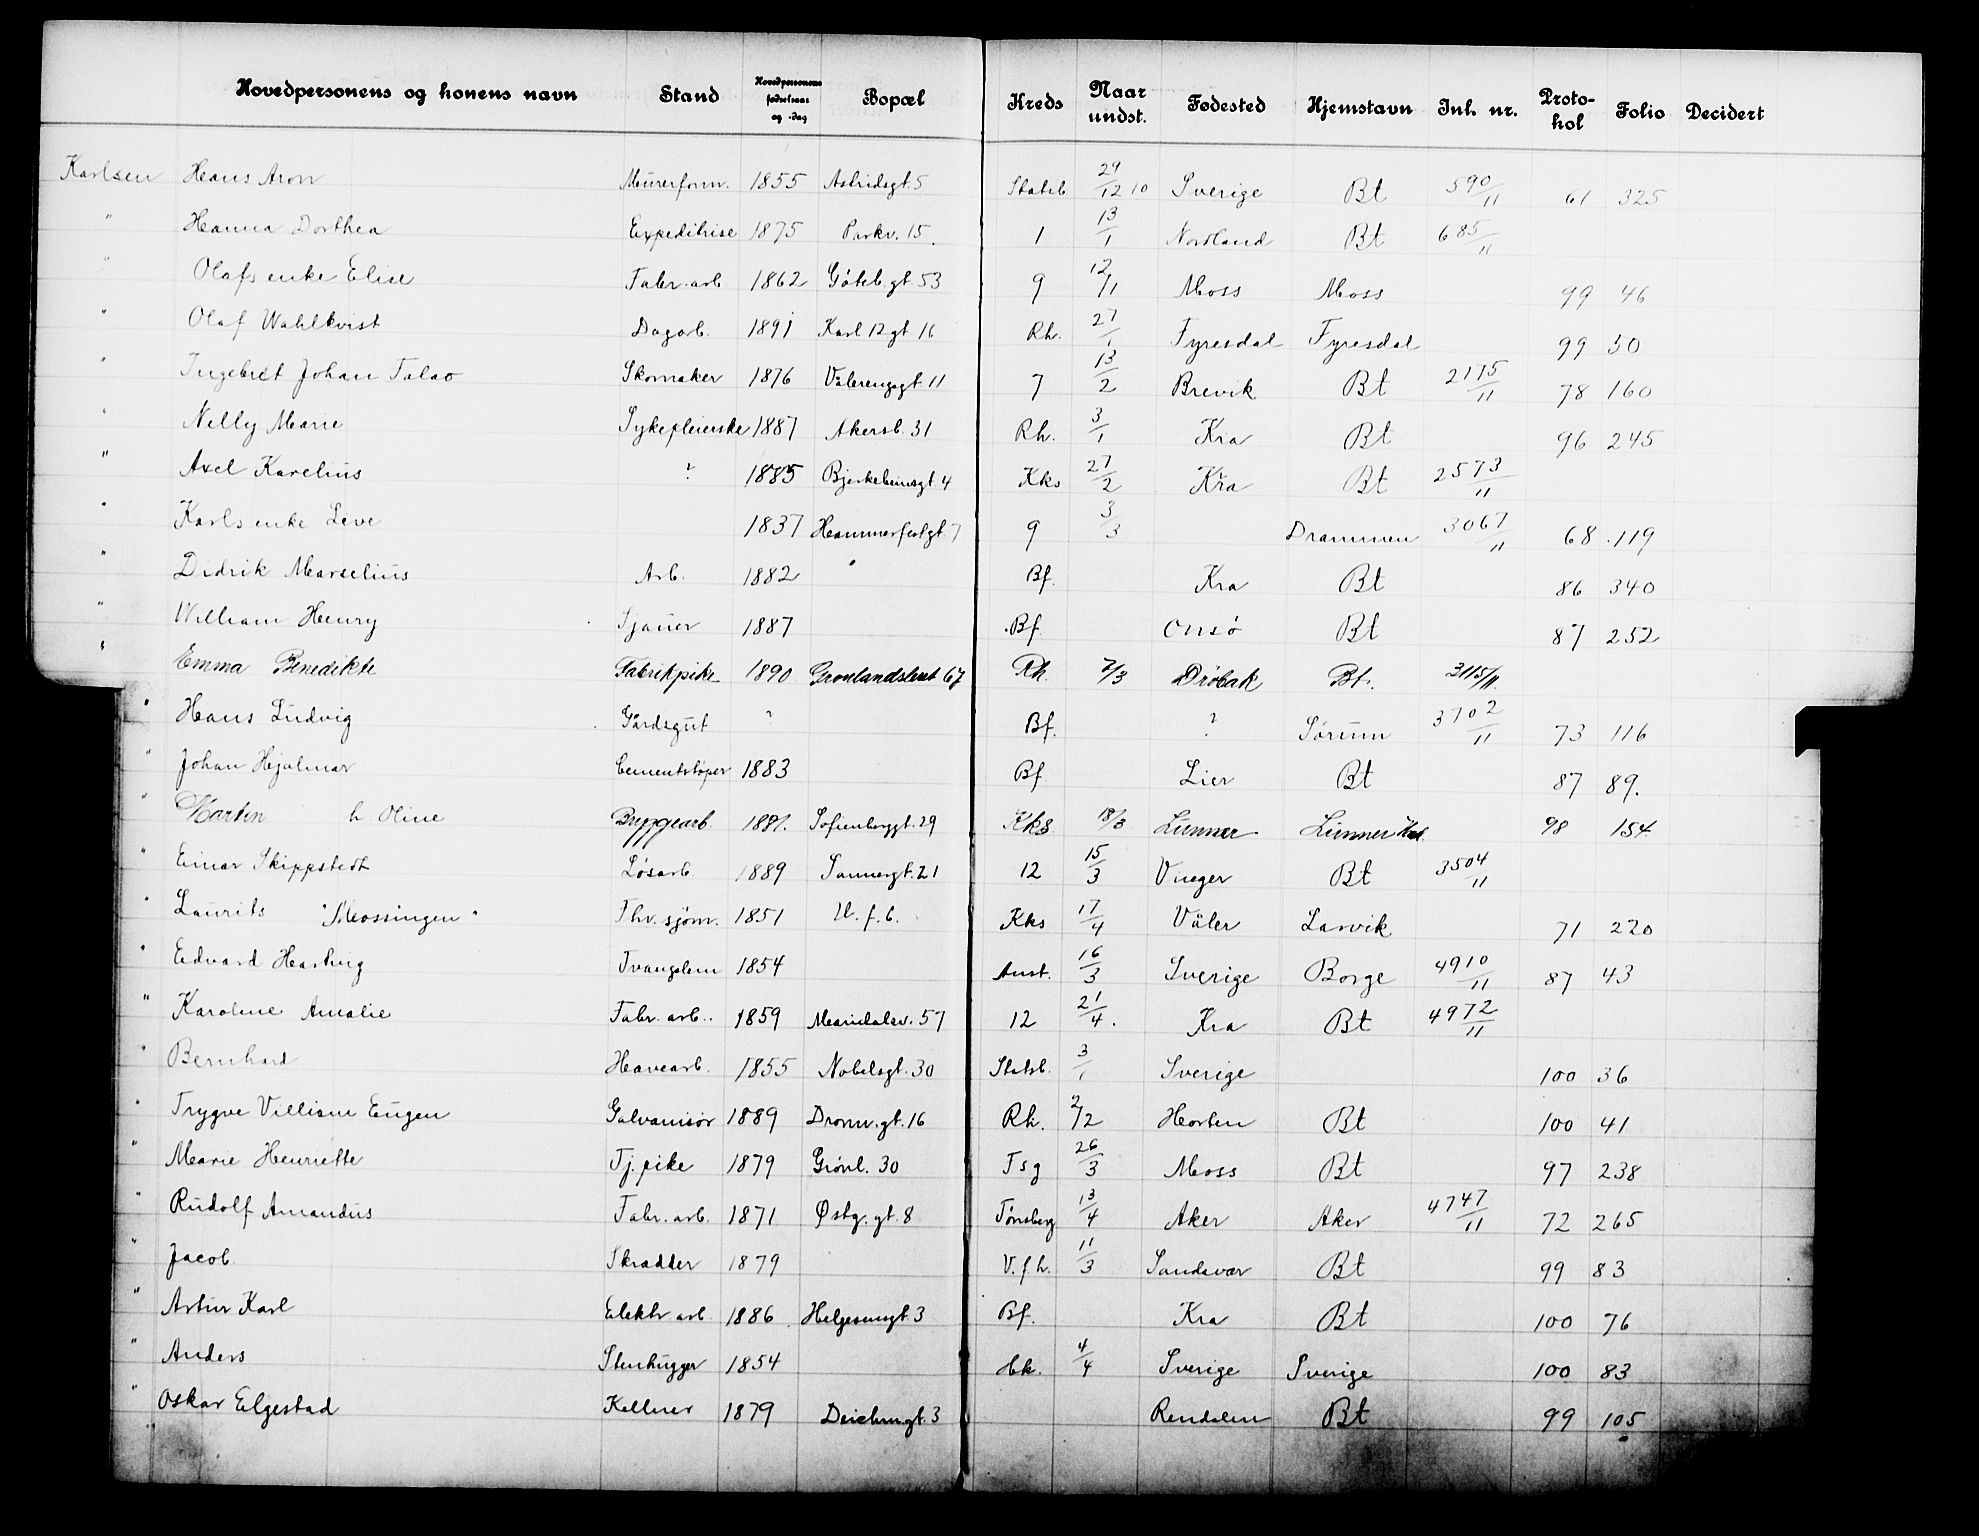 Hovedpersonens og konens navn Stand Hovedpersonens fødselsaar og -dag Bopæl Kreds Naar undst. Fødested Hjemstavn Inl. nr. Protokol Folio Decidert
Karlsen Hans Aron Murerform. 1855 Astridsgt. 5 Statsb. 29/12 10 Sverige Bt 590/11 61 325
" Hanna Dorthea Expeditrise 1875 Parkv. 15. 1 13/1 Nordland Bt 685/11
" Olafs enke Elise Fabr. arb 1862 Göteb.gt. 53 9 12/1 Moss Moss 99 46
" Olaf Wahlkvist Dagarb. 1891 Karl 12 gt 16 Rh. 27/1 Fyresdal Fyresdal 99 50
" Ingebret Johan Falao Skomaker 1876 Vålerengsgt 11 7 13/2 Brevik Bt 2175/11 78 160
" Nelly Marie Sykepleierske 1887 Akersb. 31 Rh. 3/1 Kra Bt 96 245
" Axel Karelius ? 1885 Bjerkebeinsgt 4 Kks 27/2 Kra Bt 2573/11
" Karls enke Leve 1837 Hammerfestgt 7 9 3/3 Drammen 3067/11 68 119
" Didrik Marselius Arb. 1882 " Bf. Kra Bt 86 340
" William Henry Sjauer 1887 Bf. Onsø Bt 87 252
" Emma Benedikte Fabrikpike 1890 Grønlandsleret 67 Rh. 7/3 Drøbak Bt. 3115/11
" Hans Ludvig Gårdsgut ? Bf. ? Sørum 3702/11 73 116
" Johan Hjalmar Cementstøper 1883 Bf Lier Bt 87 89.
" Martin h. Oline Bryggearb 1881. Sofienberggt. 29 Kks 18/3 Lunner Lunner 98 154
" Einar Skippstedt Løsarb 1889 Sannergt. 21 12 15/3 Vinger Bt 3504/11
" Laurits "Mossingen" Fhv. sjøm. 1851 U. f. b. Kks 17/4 Våler Larvik 71 220
" Edvard Hartvig Tvangslem 1854 Anst. 16/3 Sverige Borge 4910/11 87 43
" Karoline Amalie Fabr. arb. 1859 Maridalsv. 57 12 21/4. Kra Bt 4972/11
" Bernhard Havearb. 1855 Nobelsgt. 30 Statsb. 3/1 Sverige 100 36
" Trygve Villiam Eugen Galvanisør 1889 Dronn. gt. 16 Rh. 2/12 Horten Bt 100 41
" Marie Henriette Tj. pike 1879 Grønl. 30 Tsg 26/3 Moss Bt 97 238
" Rudolf Amandus Fabr. arb. 1871 Østg. gt. 8 Tønsberg 13/4 Aker Aker 4747/11 72 265
" Jacob Skrædder 1879 V. f. h. 11/3 Sandsvær Bt 99 83
" Artur Karl Elektr. arb. 1886 Helgesensgt 3 Bf. Kra Bt 100 76
" Anders Stenhugger 1854 Hk. 4/4 Sverige Sverige 100 83
" Oskar Elgestad Kellner 1879 Deichm.gt. 3 Rendalen Bt 99 105